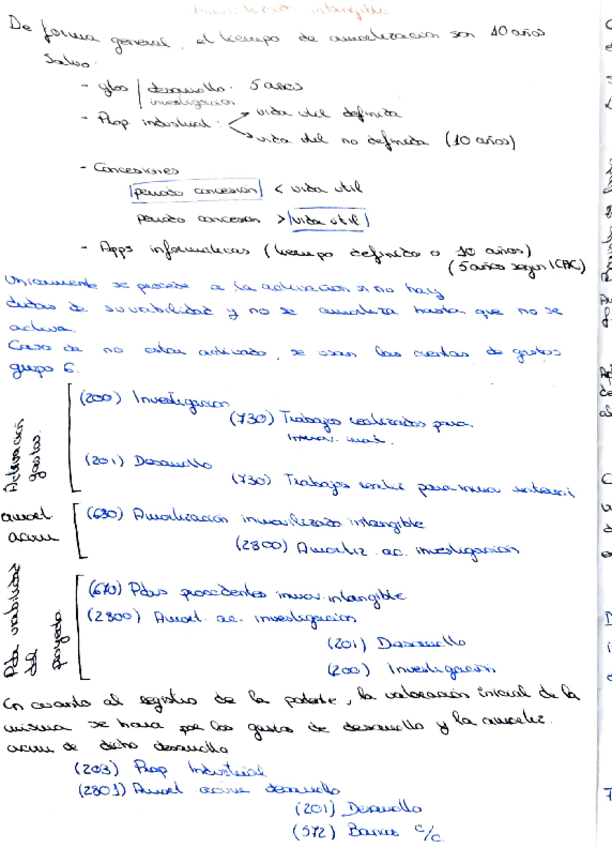 Inmovilizado intangible
De forma general, el tiempo de amortización son 10 años
Salvo.
- gtos / desarrollo. 5 años
investigación
- Prop industrial: vida util definida
vida util no definida (10 años)
- Concesiones
periodo concesión < vida util
periodo concesion > vida util
- Apps informáticas (tiempo definido o 10 años)
(5 años según ICAC)
Unicamente se procede a la activación si no hay
dudas de su viabilidad y no se amortiza hasta que no se
activa.
Caso de no estar activado, se usan las cuentas de gastos
grupo 6.
Activación gastos.
(200) Investigacion
(730) Trabajos realizados para
inmov. mat.
(201) Desarrollo
(730) Trabajos realiz para inmov
amort acum
(680) Amortización inmovilizado intangible
(2800) Amortiz. ac. investigación
Pda viabilidad del proyecto
(670) Pdas procedentes inmov. intangible
(2800) Amort. ac. investigación
(201) Desarrollo
(200) Investigación
En cuanto al registro de la patente, la valoración inicial de la
misma se hara por los gastos de desarrollo y la amortiz.
acum de dicho desarrollo
(203) Prop Industrial
(2801) Amort acum desarrollo
(201) Desarrollo
(572) Bancos c/c.